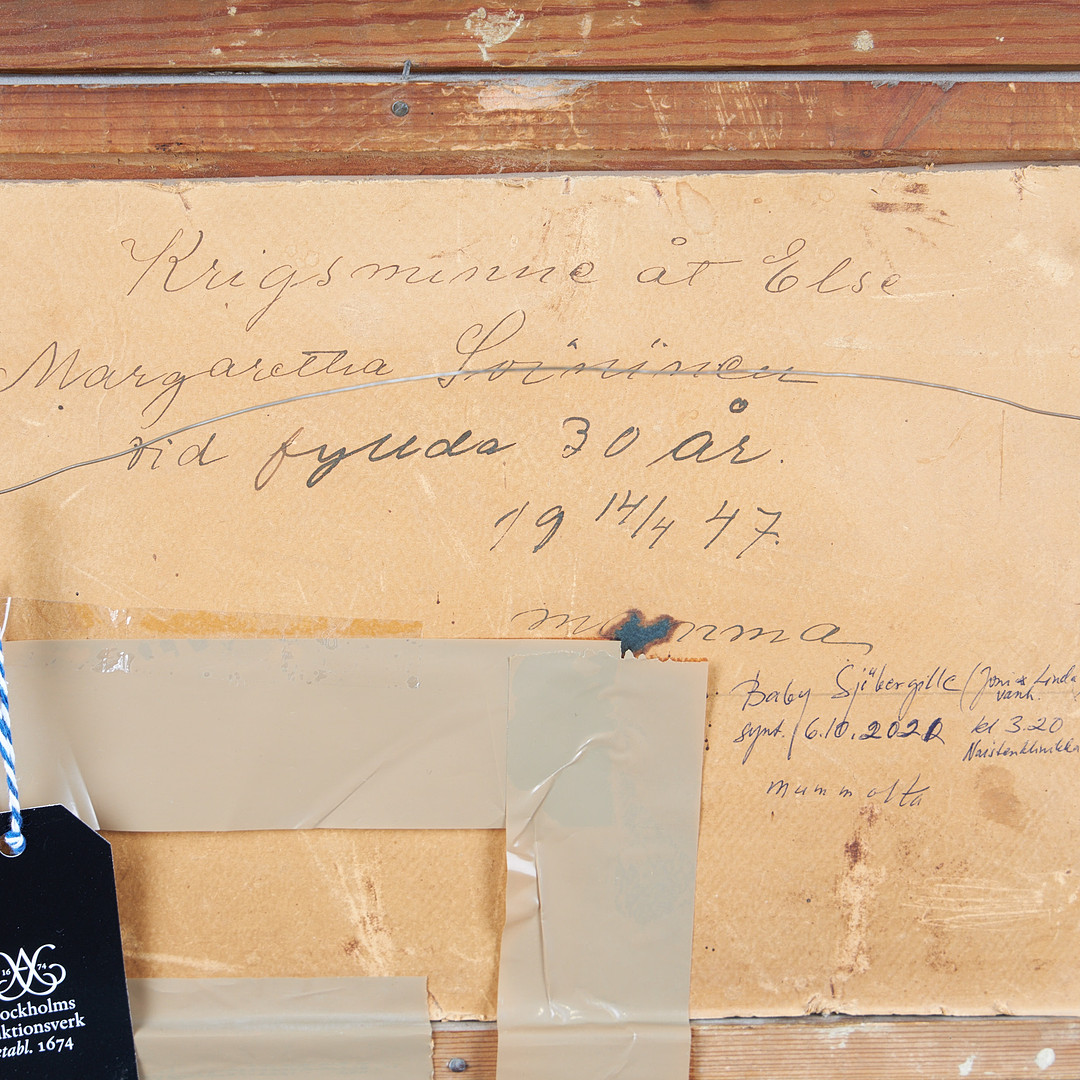 Krigsminne åt Else
Margaretha Soininen
vid fyllda 30 år.
19 14/4 47.
mamma
Baby Sjöbergille (Joni & Linda
vanh.
synt. 6.10.2020 kl 3.20
Naistenklinikka
mummolta
16 74
tockholms
ktionsverk
etabl. 1674